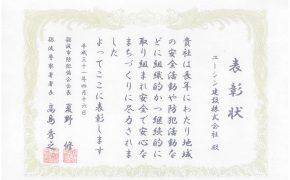 表彰状
ユーシン建設株式会社 殿
貴社は長年にわたり地域
の安全活動や防犯活動な
どに組織的かつ継続的に
取り組まれ安全で安心な
まちづくりに尽力されま
した
よってここに表彰します
平成三十一年四月十六日
砺波市防犯協会会長 夏野 修
砺波警察署署長 高島秀之